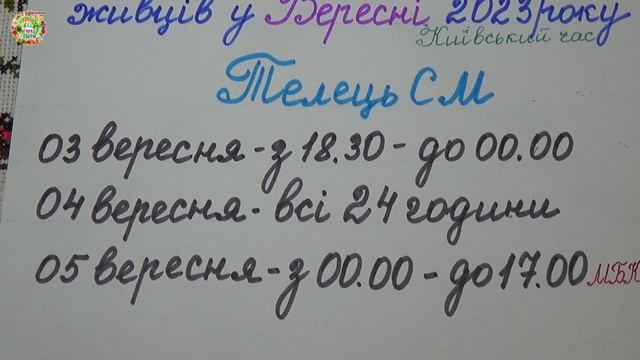 живців у Вересні 2023 року
Київський час
Телець СМ
03 вересня - з 18.30 - до 00.00
04 вересня - всі 24 години
05 вересня - з 00.00 - до 17.00 МБК